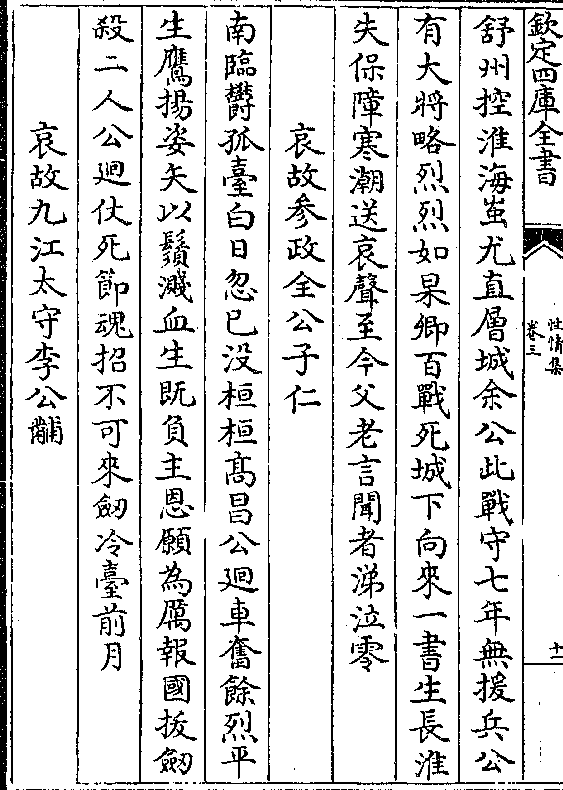 欽定四庫全書
性情集
卷三
十一
舒州控淮海蚩尤直層城余公此戰守七年無援兵公
有大將略烈烈如杲卿百戰死城下向來一書生長淮
失保障寒潮送哀聲至今父老言聞者涕泣零
哀故參政全公子仁
南臨欝孤臺白日忽已没桓桓髙昌公廻車奮餘烈平
生鷹揚姿矢以鬚濺血生既負主恩願為厲報國拔劒
殺二人公廻仗死節魂招不可來劒冷臺前月
哀故九江太守李公黼